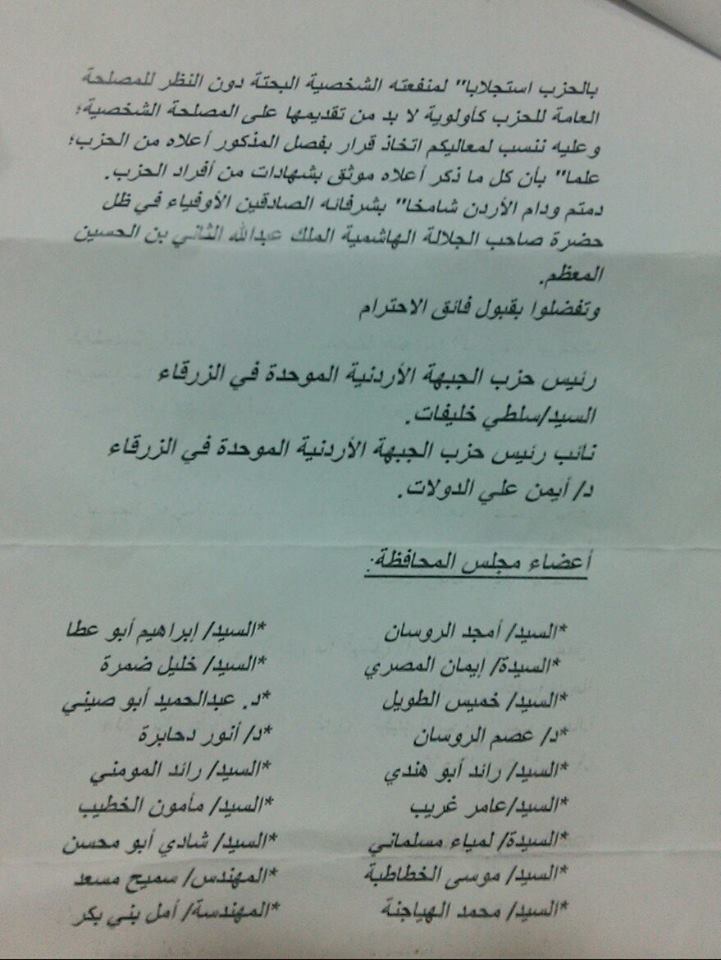 بالحزب استجلابا" لمنفعته الشخصية البحتة دون النظر للمصلحة
العامة للحزب كأولوية لا بد من تقديمها على المصلحة الشخصية؛
وعليه ننسب لمعاليكم اتخاذ قرار بفصل المذكور أعلاه من الحزب؛
علما" بأن كل ما ذكر أعلاه موثق بشهادات من أفراد الحزب.
دمتم ودام الأردن شامخا" بشرفائه الصادقين الأوفياء في ظل
حضرة صاحب الجلالة الهاشمية الملك عبدالله الثاني بن الحسين
المعظم.
وتفضلوا بقبول فائق الاحترام
رئيس حزب الجبهة الأردنية الموحدة في الزرقاء
السيد/سلطي خليفات.
نائب رئيس حزب الجبهة الأردنية الموحدة في الزرقاء
د/ أيمن علي الدولات.
أعضاء مجلس المحافظة:
*السيد/ أمجد الروسان *السيد/ إبراهيم أبو عطا
*السيدة/ إيمان المصري *السيد/ خليل ضمرة
*السيد/ خميس الطويل *د. عبدالحميد أبو صيني
*د/ عصم الروسان *د/ أنور دحابرة
*السيد/ رائد أبو هندي *السيد/ رائد المومني
*السيد/عامر غريب *السيد/ مأمون الخطيب
*السيدة/ لمياء مسلماني *السيد/ شادي أبو محسن
*السيد/ موسى الخطاطبة *المهندس/ سميح مسعد
*السيد/ محمد الهياجنة *المهندسة/ أمل بني بكر